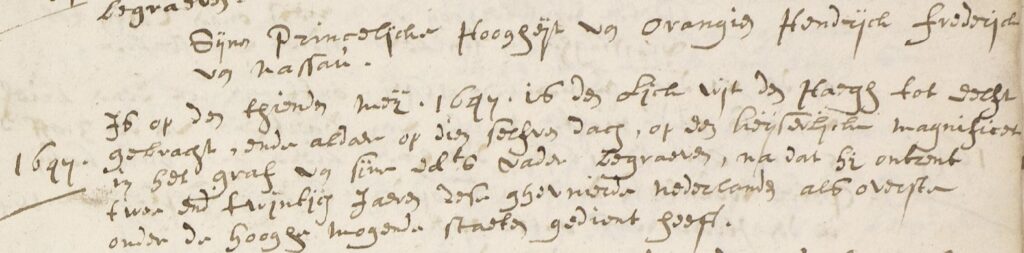 begraeven.
Syne Princelijcke Hoogheijt van Orangien Hendrijck Frederijck
van Nassau.
Is op den thienden meij. 1647. is den Lijck uijt den Haegh tot delft
1647. gebracht, ende aldaer op dien selven dach, op een keijserlijcke magnificet
in het graf van sijne Edts vader begraeven, na dat hij ontrent
twee end twintich Jaeren dese ghevnierde nederlanden als overste
onder de hooghe mogende staeten gedient heeft.